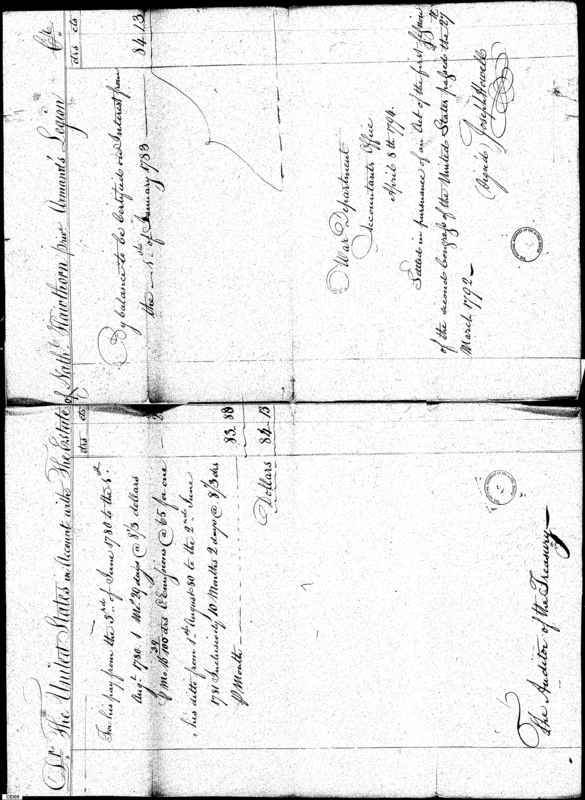 Dr. The United States in Account with The Estate of Nath.l Hawthorn priv.t Armant's Legion Cr.
drs cts
For his pay from the 3rd of June 1780 to the
Aug.t 1780. 1 Mo. 29 days @ 8/3 dollars
p Mo. is 100 drs O Emissions @ 65 for one
his ditto from 1st August 80 to the 2nd June
1781 Inclusively 10 Months 2 days @ 8/3 drs
p Month 83. 88
Dollars 84. 13
The Auditor of the Treasury
drs cts
By balance to be Certified on Interest from
the of January 1783 84. 13
War Department
Accountants Office
April 8th 1794.
Settled in pursuance of an Act of the first Session
of the second Congress of the United States passed the 27th
March 1792
(Sign'd) Joseph Howell